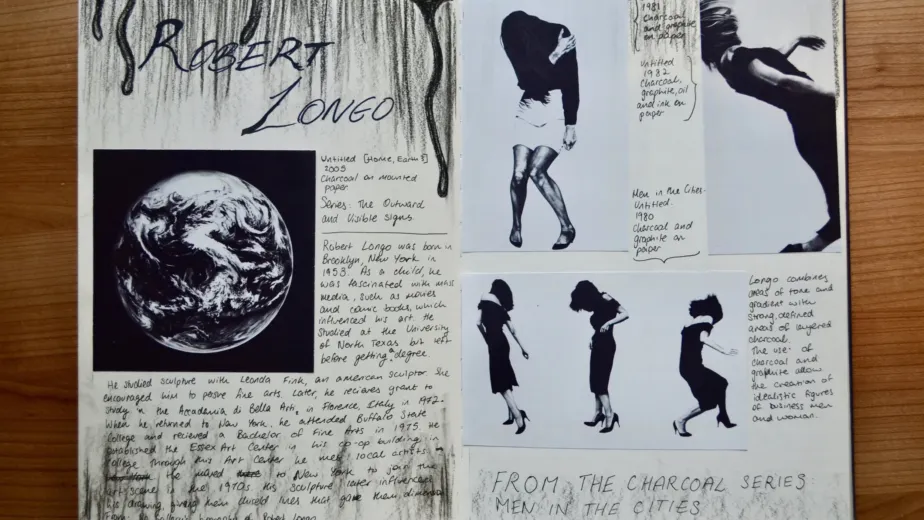 ROBERT
LONGO
Untitled [Home, Earth]
2005
Charcoal on mounted
paper
Series: The Outward
and Visible Signs.
Robert Longo was born in
Brooklyn, New York in
1953. As a child, he
was fascinated with mass
media, such as movies
and comic books, which
influenced his art. He
studied at the University
of North Texas but left
before getting a degree.
He studied sculpture with Leonda Fink, an american sculptor. She
encouraged him to pesre fine arts. Later, he recieves grant to
study in the Academia di Bella Arti, in Florence, Italy in 1972.
When he returned to New York, he attended Buffalo State
College and recieved a Bachelor of Fine Arts in 1975. He
established the Essex Art Center in his co-op building, in
college through his Art Center he met local artists
he moved to New York to join the
artscene in the 1970s His sculpture later influenced
his drawing, giving them chisled lines that gave them
1981
Charcoal
and graphite
on paper
Untitled
1982
Charcoal,
graphite, oil
and ink on
paper
Men in the Cities-
Untitled.
1980
Charcoal and
graphite on
paper
Longo combines
areas of tone and
gradient with
strong, defined
areas of layered
charcoal.
The use of
charcoal and
graphite allow
the creation of
idealistic figures
of business men
and woman.
FROM THE CHARCOAL SERIES:
MEN IN THE CITIES